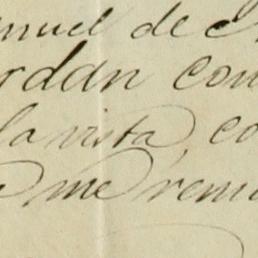 nuel de
rdan con
la vista, co
me remi